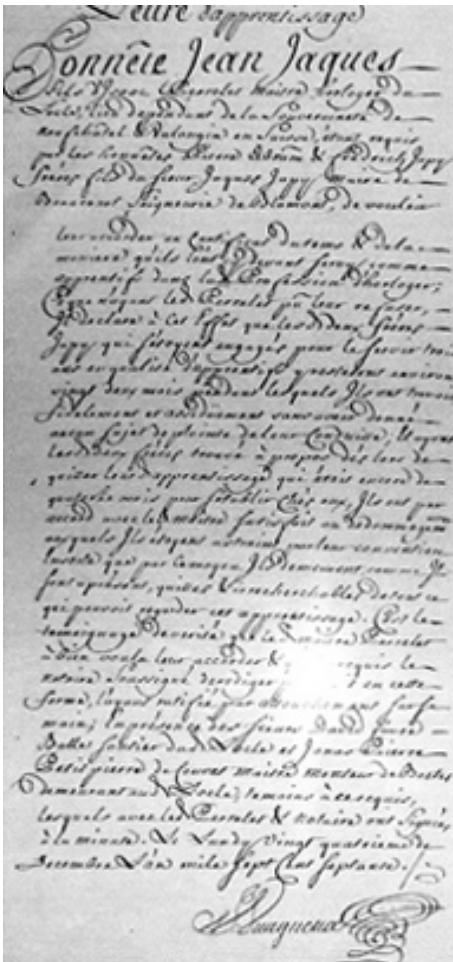 Lettre d'apprentissage
Honnête Jean Jaques
Fils d'Isaac Perrelet Maitre horloger du
Locle, lieu dependant de la Souveraineté de
neufchâtel & Valangin en Suisse, étant requis
par les honnêtes Pierre & Fréderich Japy
frères fils du sieur Jaques Japy Maire de
Beaucourt Seigneurie de Blamont, de vouloir
leur accorder un Certificat du tems & de la
maniere qu'ils l'ont servi comme
apprentifs dans la Profession d'horloger;
Ce que n'ayant led. Perrelet pû leur refuser,
Il declare à ces Effets que lesd. deux frères
Japy qui s'étoyent engagés pour le servir trois
ans en qualité d'apprentifs y resterent environ
vingt deux mois pendant lesquels Ils ont travaillé
fidelement et assidûment sans avoir donné
aucun sujet de plainte de leur Conduite; Et ayant
lesd. deux frères trouvé à propos dès lors de
quitter leur d. apprentissage qui étoit encore de
quatorze mois pour s'établir chès eux, Ils ont par
accord avec led. maitre satisfait au dedommagem.
auquels Ils étoyent astraints par leur convention
que par ce moyen Ils demeurent, comme Ils
sont à présent, quittes & irrecherchables de tout ce
qui pouvoit regarder cet apprentissage. C'est le
temoignage de verité que led. maitre Perrelet
à bien voulu leur accorder & requis le
notaire soussigné de rediger en cette
forme, l'ayant ratifié par attouchement sur sa
main; En présence des sieurs David
Sautier dud. Locle et Jonas Pierre
Petitpierre de Couvet maitre monteur de Boëtes
demeurant aud. Locle, temoins à ce requis,
lesquels avec led. Perrelet & notaire ont signés
à la minute. Le Lundy vingt quatrieme de
Decembre L'an mile sept Cent septante.